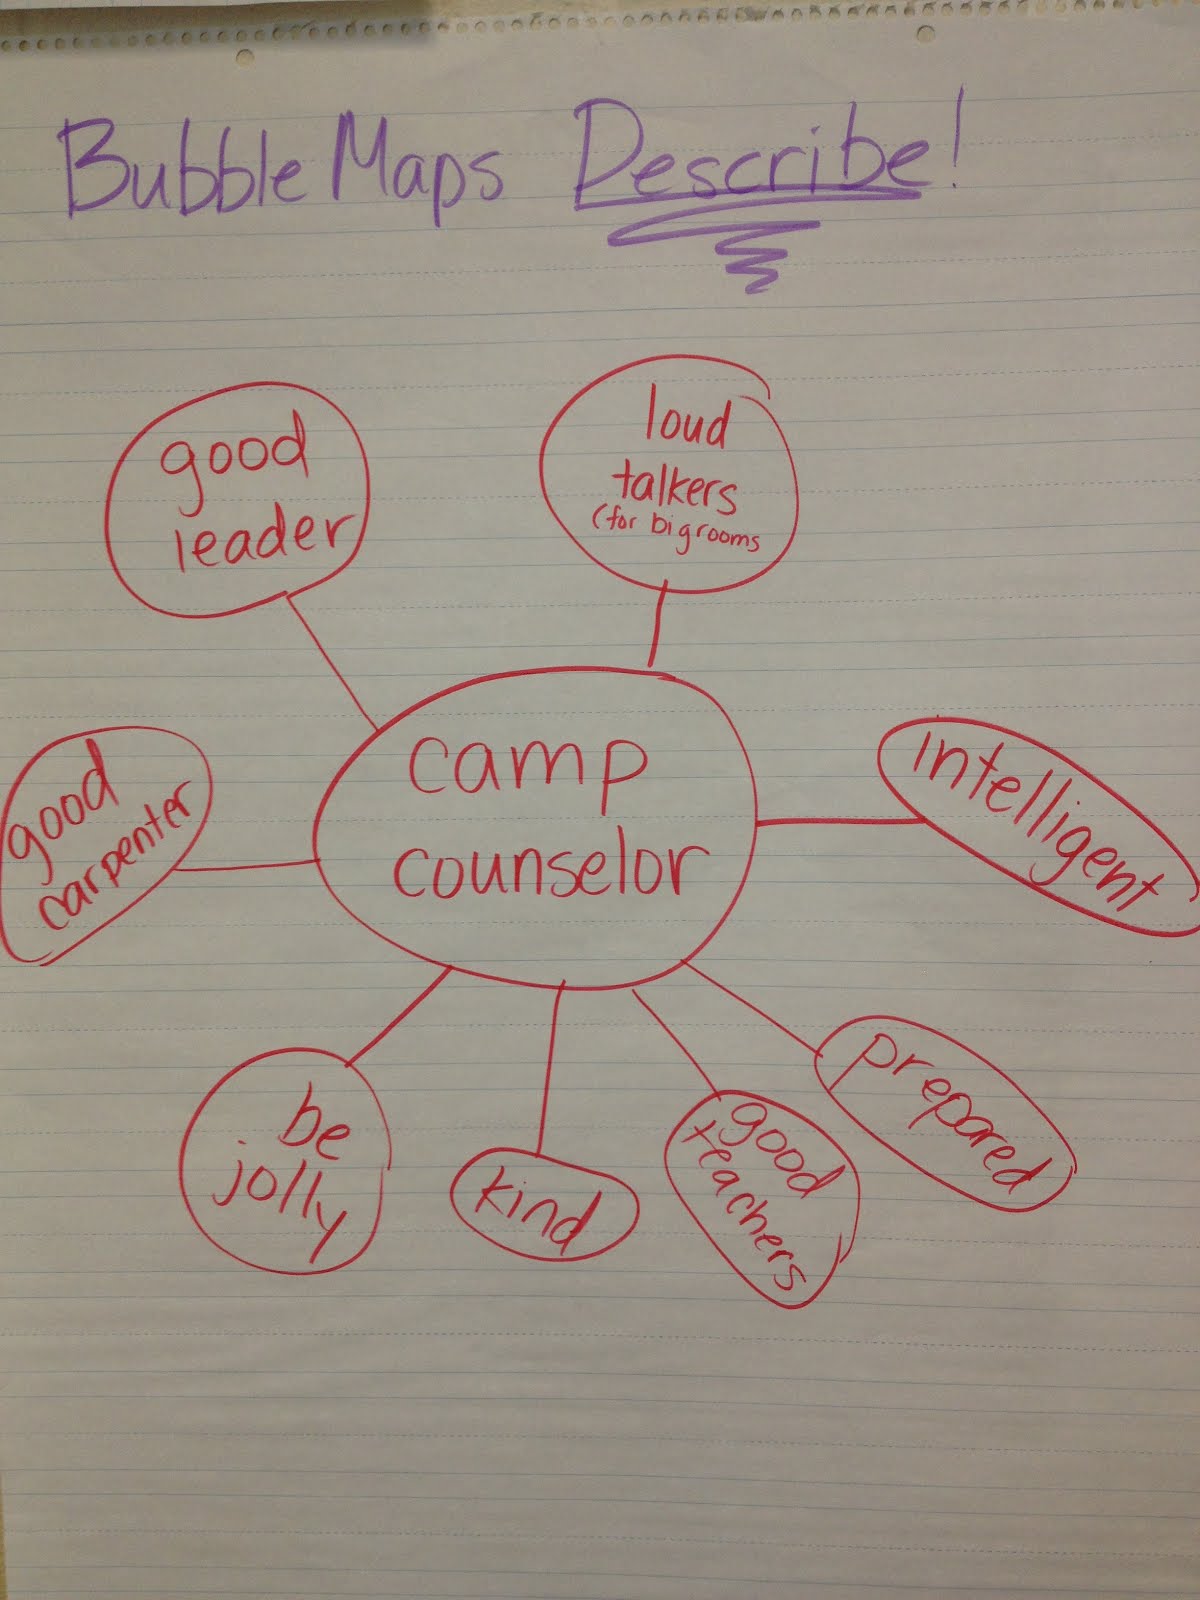 Bubble Maps Describe!
good
leader
loud
talkers
(for big rooms
camp
counselor
intelligent
good
carpenter
be
jolly
kind
good
teachers
prepared